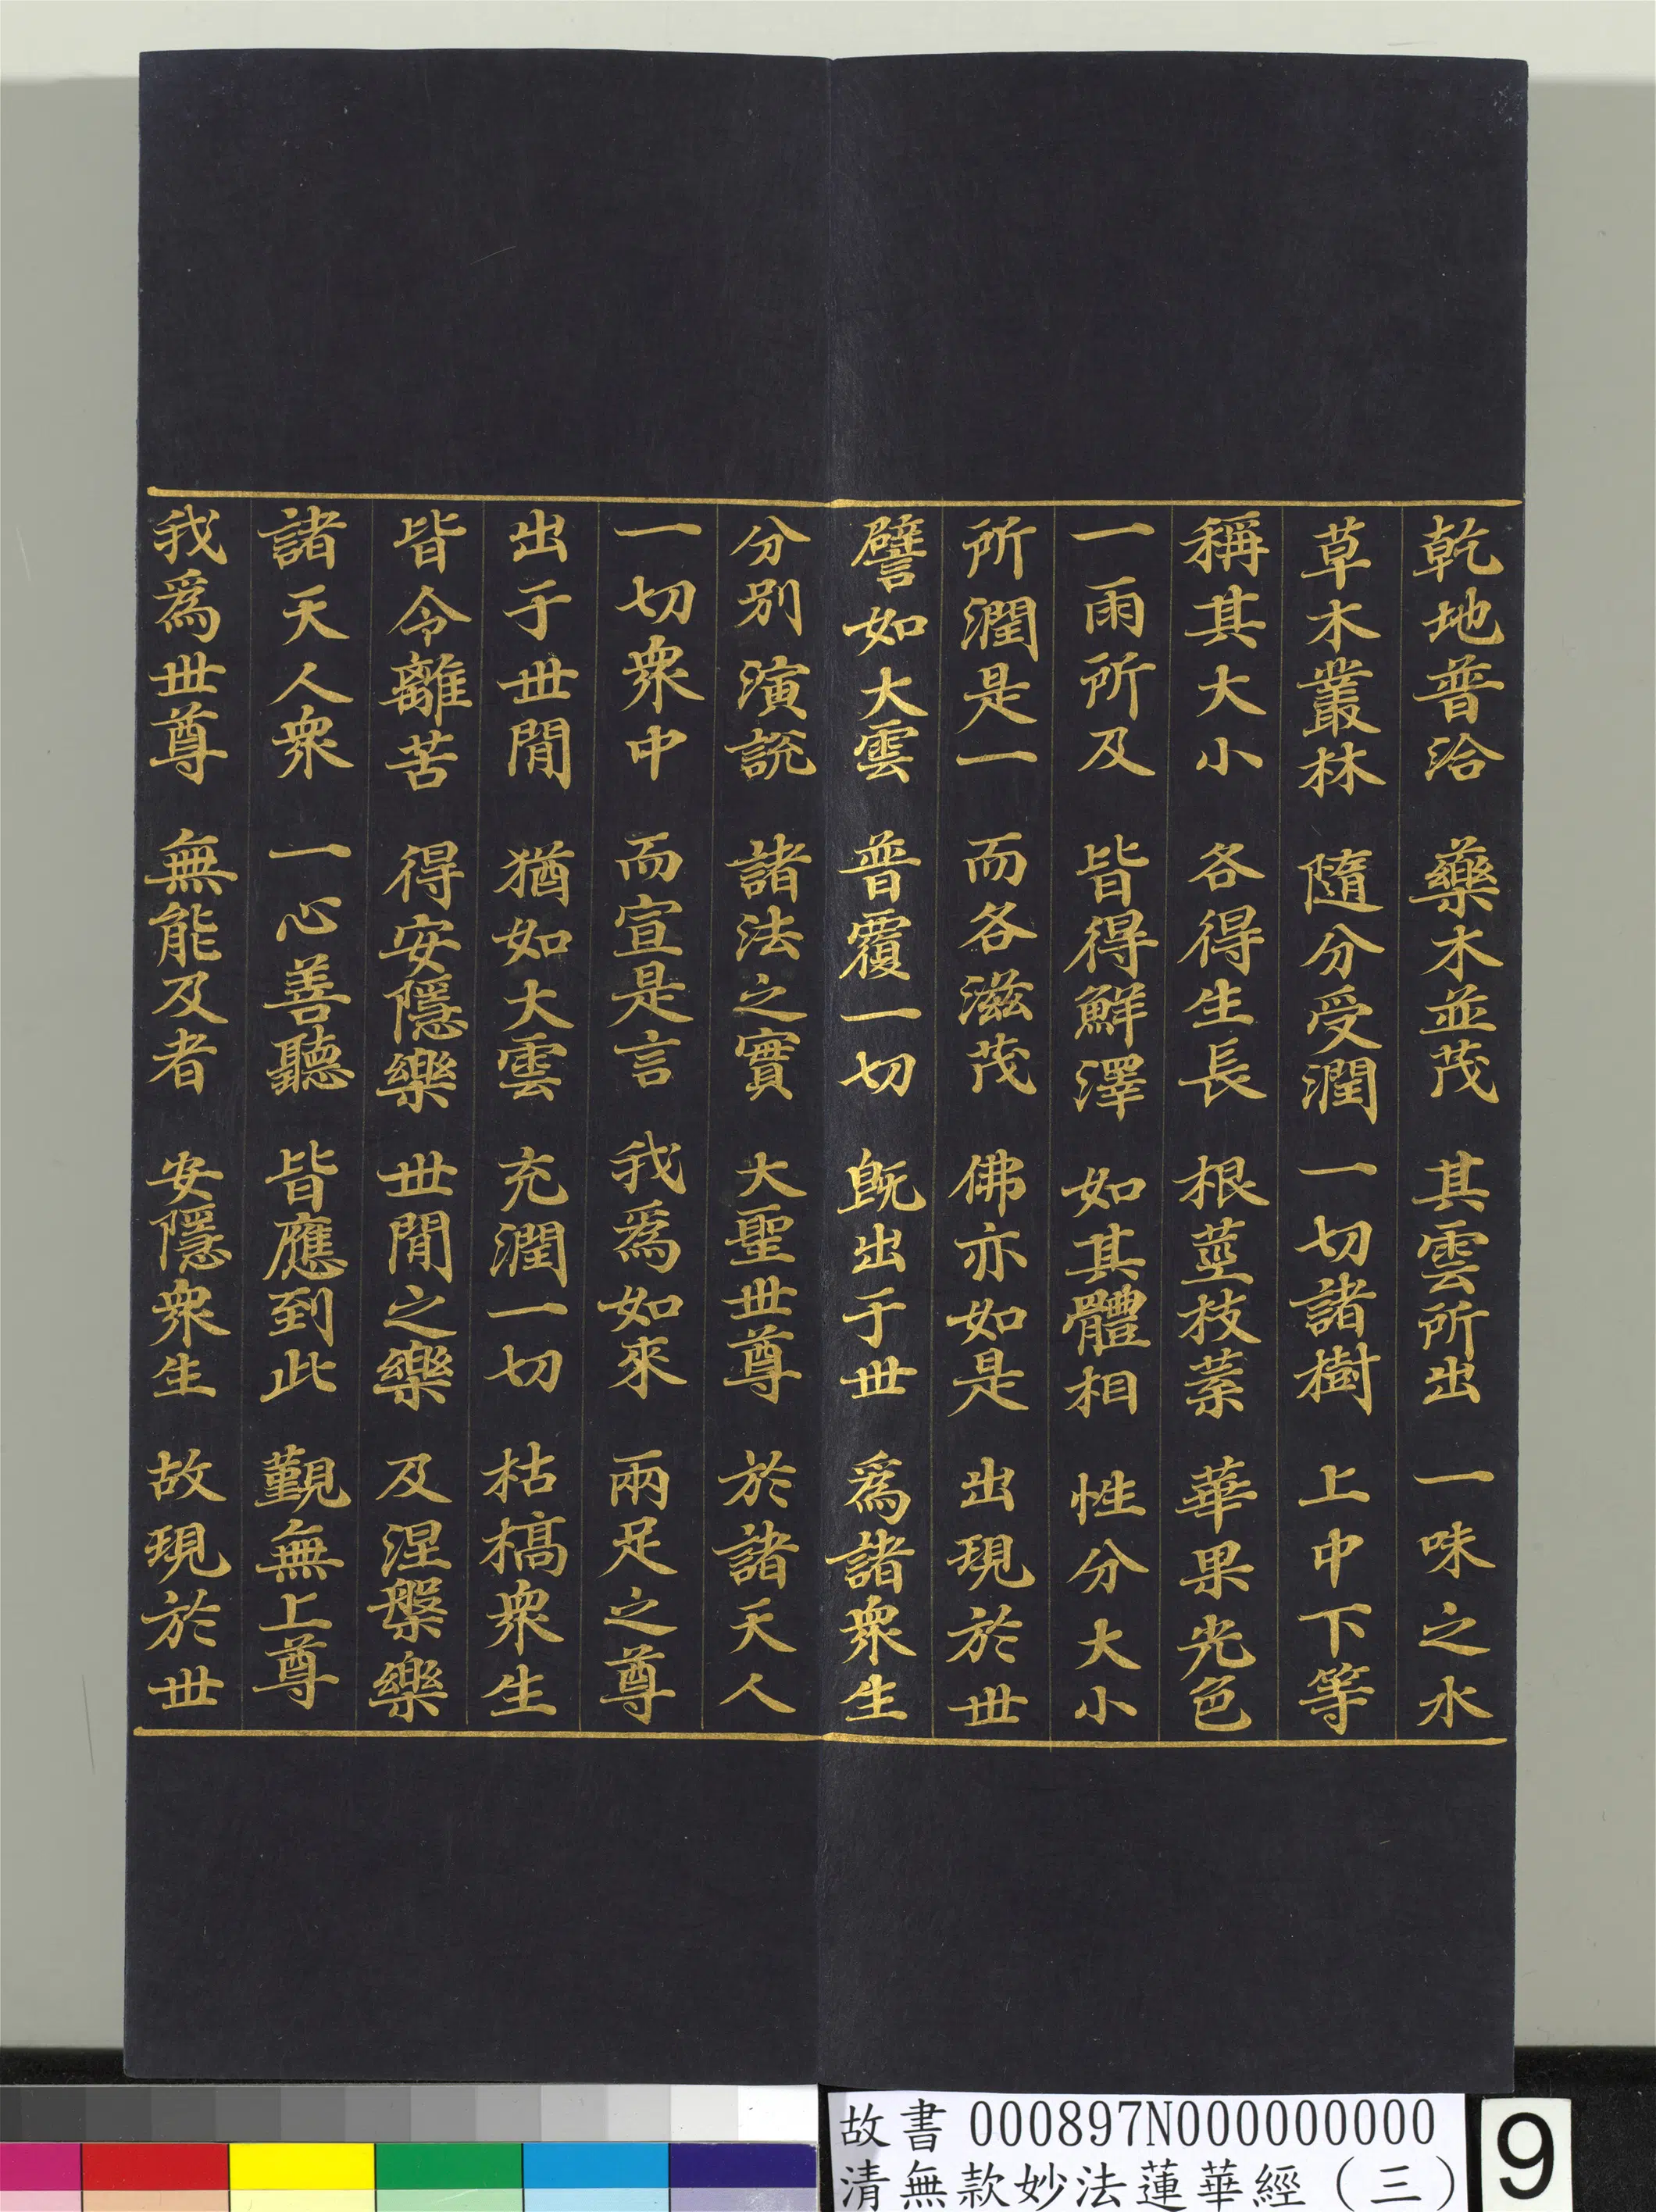 乾地普洽 藥木並茂 其雲所出 一味之水
草木叢林 隨分受潤 一切諸樹 上中下等
稱其大小 各得生長 根莖枝葉 華果光色
一雨所及 皆得鮮澤 如其體相 性分大小
所潤是一 而各滋茂 佛亦如是 出現於世
譬如大雲 普覆一切 既出于世 為諸衆生
分別演說 諸法之實 大聖世尊 於諸天人
一切衆中 而宣是言 我為如來 兩足之尊
出于世間 猶如大雲 充潤一切 枯槁衆生
皆令離苦 得安隱樂 世間之樂 及涅槃樂
諸天人衆 一心善聽 皆應到此 覲無上尊
我為世尊 無能及者 安隱衆生 故現於世
故書 000897N000000000
清無款妙法蓮華經（三）
9